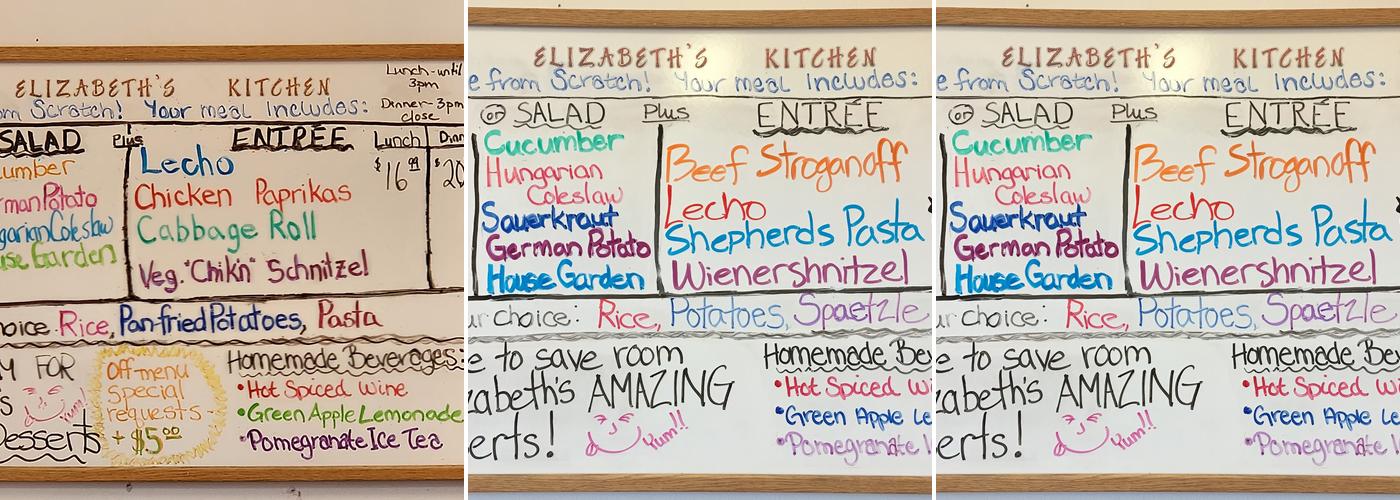 ELIZABETH'S KITCHEN
Lunch-until
3pm
Scratch! Your meal Includes:
Dinner-3pm
close
SALAD Plus ENTRÉE Lunch
Lecho
$16.99
Chicken Paprikas
Cabbage Roll
Veg. "Chikn" Schnitzel
Garden
Rice, Panfried Potatoes, Pasta
FOR
Desserts
Off-menu
Special
requests -
+ $5.00
Homemade Beverages:
•Hot Spiced Wine
•Green Apple Lemonade
•Pomegranate Ice Tea
Yum!
ELIZABETH'S KITCHEN
from Scratch! Your meal Includes:
or SALAD Plus ENTRÉE
Cucumber
Hungarian
Coleslaw
Sauerkraut
German Potato
House Garden
Beef Stroganoff
Lecho
Shepherds Pasta
Wienershnitzel
choice: Rice, Potatoes, Spaetzle
to save room
AMAZING
Yum!!
Homemade
•Hot Spiced
•Green Apple
•Pomegranate
ELIZABETH'S KITCHEN
from Scratch! Your meal Includes:
or SALAD Plus ENTRÉE
Cucumber
Hungarian
Coleslaw
Sauerkraut
German Potato
House Garden
Beef Stroganoff
Lecho
Shepherds Pasta
Wienershnitzel
choice: Rice, Potatoes, Spaetzle
to save room
AMAZING
Yum!!
Homemade
•Hot Spiced
•Green Apple
•Pomegranate